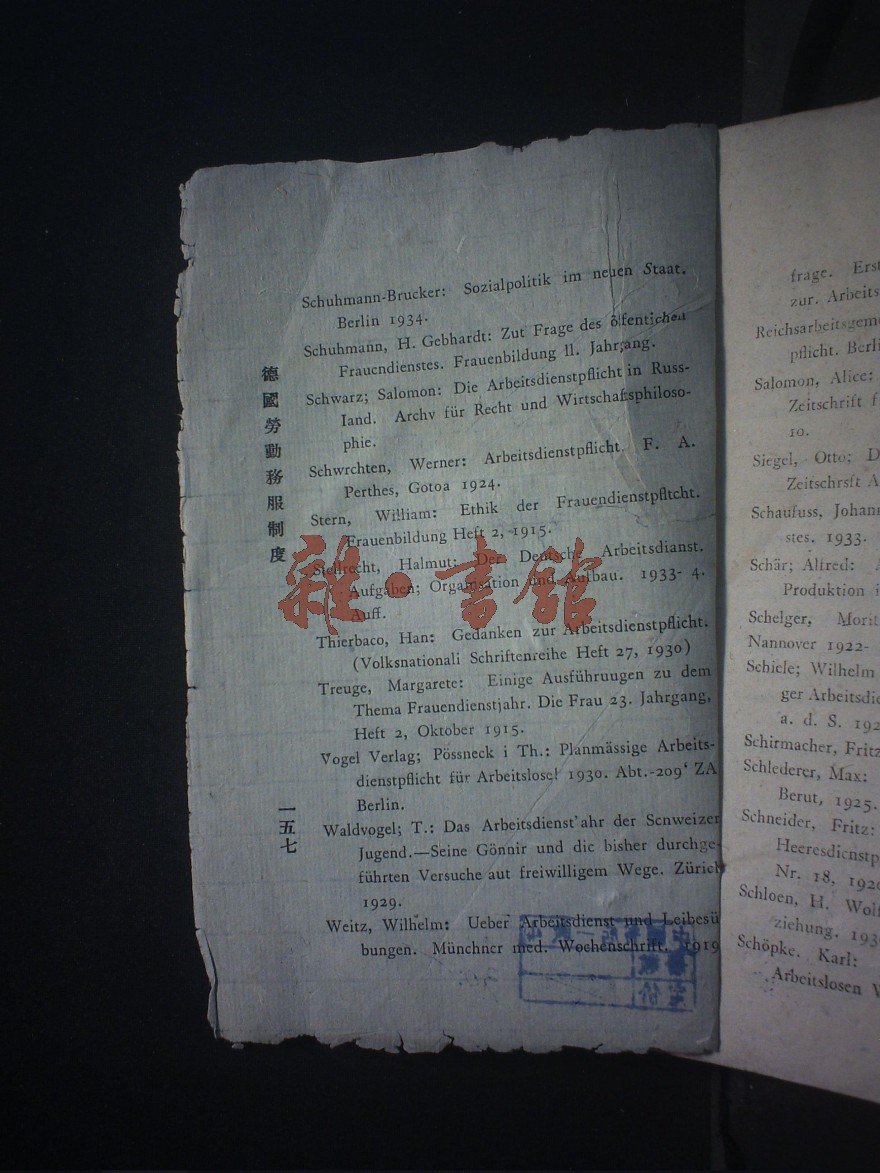 Schuhmann-Brucker: Sozialpolitik im neuen Staat.
Berlin 1934.
Schuhmann, H. Gebhardt: Zut Frage des öfentichen
Frauendienstes. Frauenbildung 11. Jahrgang.
Schwarz; Salomon: Die Arbeitsdienstpflicht in Russ-
Iand. Archv für Recht und Wirtschaftsphiloso-
phie.
Schwrchten, Werner: Arbeitsdienstpflicht. F. A.
Perthes, Gotoa 1924.
Stern, William: Ethik der Frauendienstpfltcht.
Frauenbildung Heft 2, 1915.
Stellrecht, Halmut: Der Deutsche Arbeitsdianst.
Aufgaben; Organisation und Aufbau. 1933- 4.
Auff.
Thierbaco, Han: Gedanken zur Arbeitsdienstpflicht.
(Volksnationali Schriftenreihe Heft 27, 1930)
Treuge, Margarete: Einige Ausführuugen zu dem
Thema Frauendienstjahr. Die Frau 23. Jahrgang,
Heft 2, Oktober 1915.
Vogel Verlag; Pössneck i Th.: Planmässige Arbeits-
dienstpflicht für Arbeitslose! 1930. Abt.-209' ZA
Berlin.
Waldvogel; T.: Das Arbeitsdienst'ahr der Scnweizer
Jugend.—Seine Gönnir und dic bisher durchge-
führten Versuche aut freiwilligem Wege. Zürich
1929.
Weitz, Wilhelm: Ueber Arbeitsdienst und Leibesü
bungen. Münchner med. Wochenschrift. 1919
德國勞動務服制度
一五七
雜·書館
frage. Erst
zur. Arbeits
Reichsarbeitsgeme
pflicht. Berli
Salomon, Alice:
Zeitschrift f
10.
Siegel, Otto: D
Zeitschrsft A
Schaufuss, Johann
stes. 1933.
Schär; Alfred:
Produktion i
Schelger, Morit
Nannover 1922-
Schiele; Wilhelm
ger Arbeitsdie
a. d. S. 192
Schirmacher, Fritz
Schlederer, Max:
Berut, 1925.
Schneider, Fritz:
Heeresdienstp
Nr. 18, 1920
Schloen, H. Wolf
ziehung. 193
Schöpke. Karl:
Arbeitslosen V